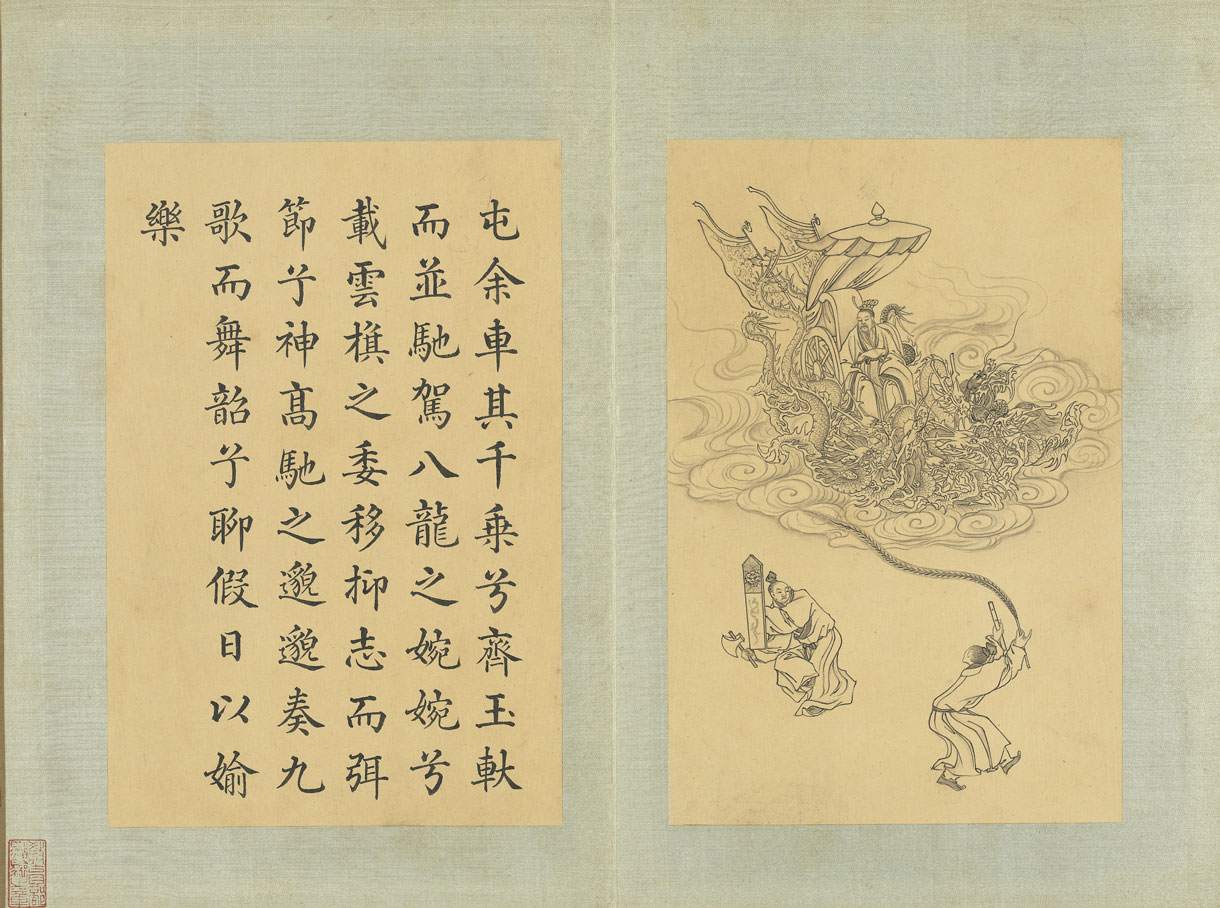 屯余車其千乗兮齊玉軑
而並馳駕八龍之婉婉兮
載雲旗之委移抑志而弭
節兮神高馳之邈邈奏九
歌而舞韶兮聊假日以媮
樂